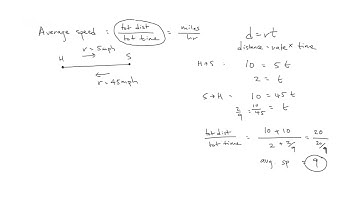 Average speed : tot dist / tot time = miles / hr
r = 5mph
H S
r = 45mph
d = rt
distance = rate × time
H→S : 10 = 5t
2 = t
S→H : 10 = 45t
2/9 = 10/45 = t
tot dist / tot time = 10 + 10 / 2 + 2/9 = 20 / 20/9
avg. sp = 9